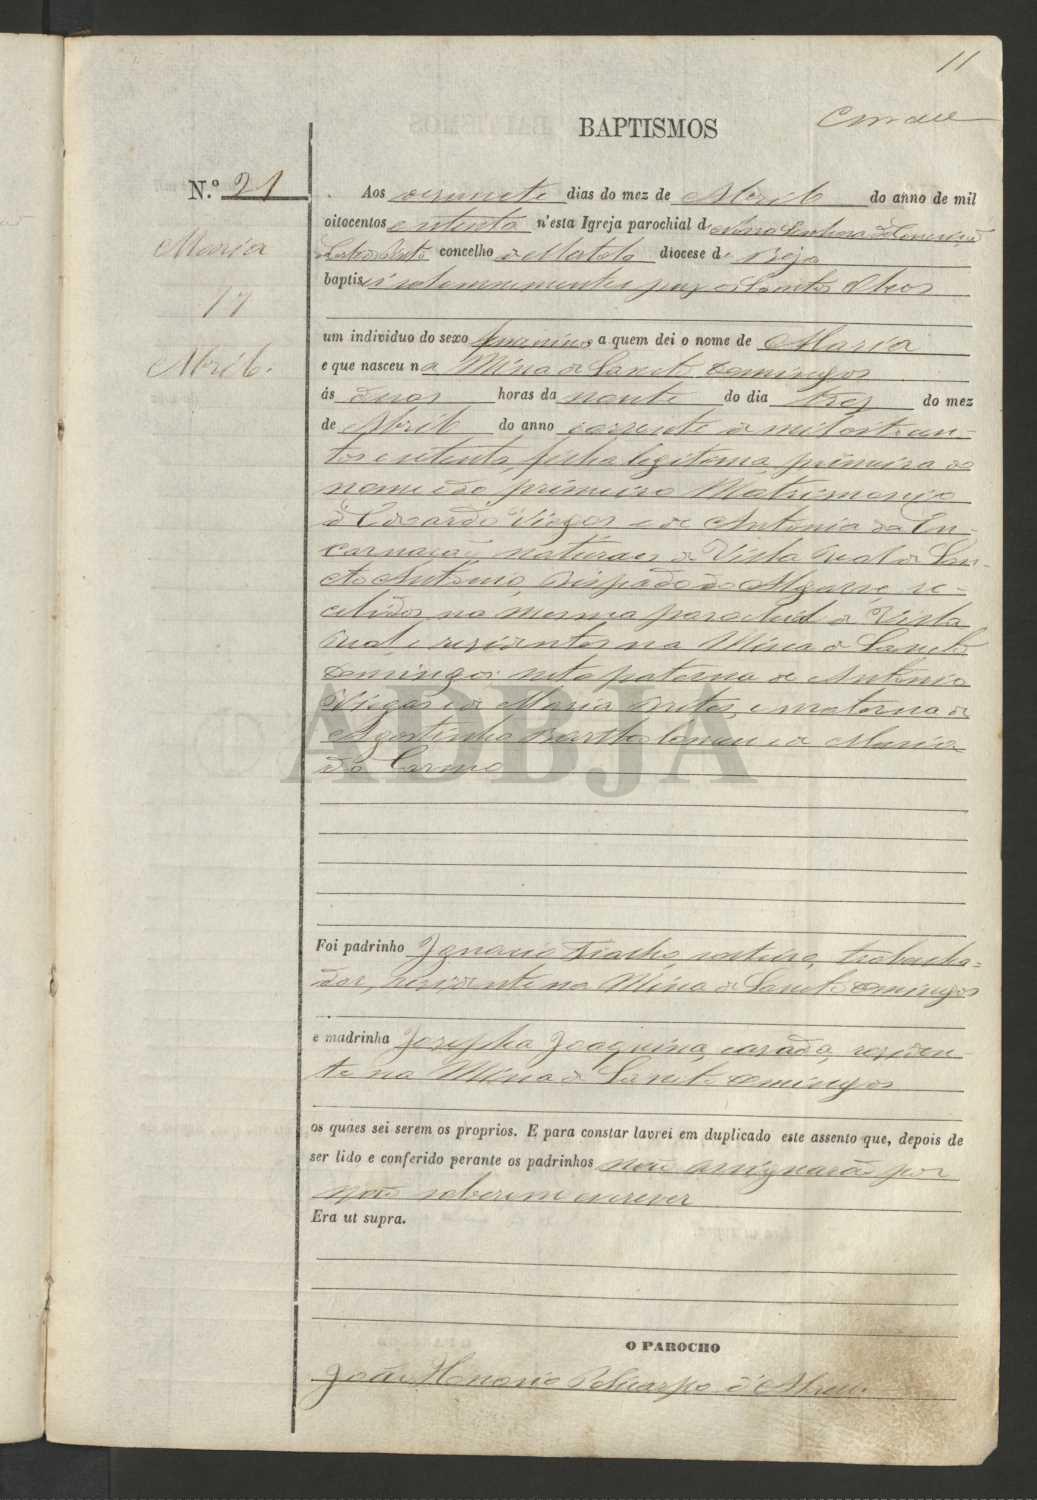 11
BAPTISMOS
N.º 21
Aos desasete dias do mez de Abril do anno de mil
Maria
oitocentos e setenta n'esta Igreja parochial de Nossa Senhora da Conceição
concelho de Mertola diocese de Beja
baptisei solemnemente e puz os Santos Oleos
17
um individuo do sexo femenino a quem dei o nome de Maria
Abril.
e que nasceu na Mina de Sancto Domingos
ás duas horas da noute do dia tres do mez
de Abril do anno corrente de mil oitocen-
tos e setenta, filha legitima, primeira do
nome e do primeiro Matrimonio
de Eduardo Viegas e de Antonia da En-
carnação naturaes de Villa Real de San-
cto Antonio, Bispado do Algarve, re-
cebidos na mesma parochial de Villa
Real, e residentes na Mina de Sancto
Domingos: neta paterna de Antonio
Viegas e de Maria Brites, e materna de
Agostinho Bartholomeu e de Maria
do Carmo
Foi padrinho Ignacio solteiro, trabalha-
dor, residente na Mina de Sancto Domingos
e madrinha Josepha Joaquina, casada, residen-
te na Mina de Sancto Domingos
os quaes sei serem os proprios. E para constar lavrei em duplicado este assento que, depois de
ser lido e conferido perante os padrinhos não assignarão por
não saberem escrever
Era ut supra.
O PAROCHO
João Honorio Policarpo d'Abreu.
© ADBJA